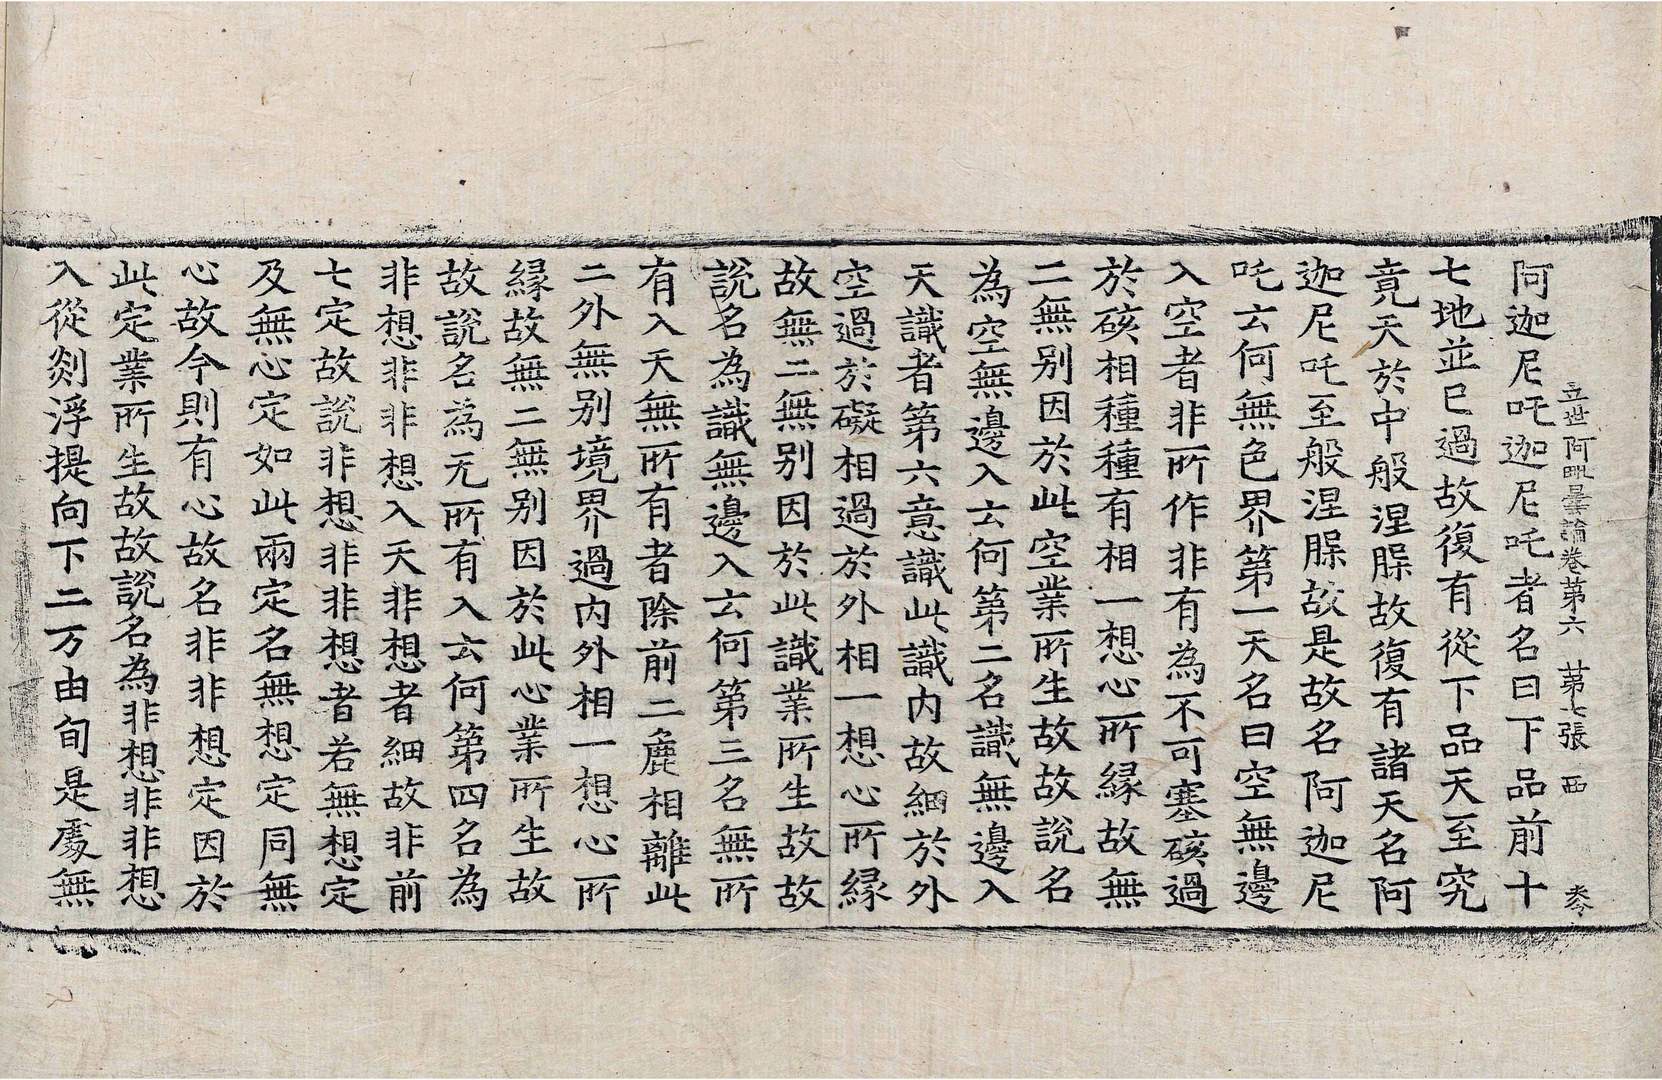 立世阿毗曇論卷第六 第七張 西 叅
阿迦尼吒迦尼吒者名曰下品前十
七地並已過故復有從下品天至究
竟天於中般涅槃故復有諸天名阿
迦尼吒至般涅槃故是故名阿迦尼
吒云何無色界第一天名曰空無邊
入空者非所作非有為不可塞礙過
於礙相種種有相一想心所緣故無
二無別因於此空業所生故故說名
為空無邊入云何第二名識無邊入
天識者第六意識此識內故細於外
空過於礙相過於外相一想心所緣
故無二無別因於此識業所生故故
說名為識無邊入云何第三名無所
有入天無所有者除前二麁相離此
二外無別境界過內外相一想心所
緣故無二無別因於此心業所生故
故說名為无所有入云何第四名為
非想非非想入天非想者細故非前
七定故說非想非非想者若無想定
及無心定如此兩定名無想定同無
心故今則有心故名非非想定因於
此定業所生故故說名為非想非非想
入從剡浮提向下二万由旬是處無